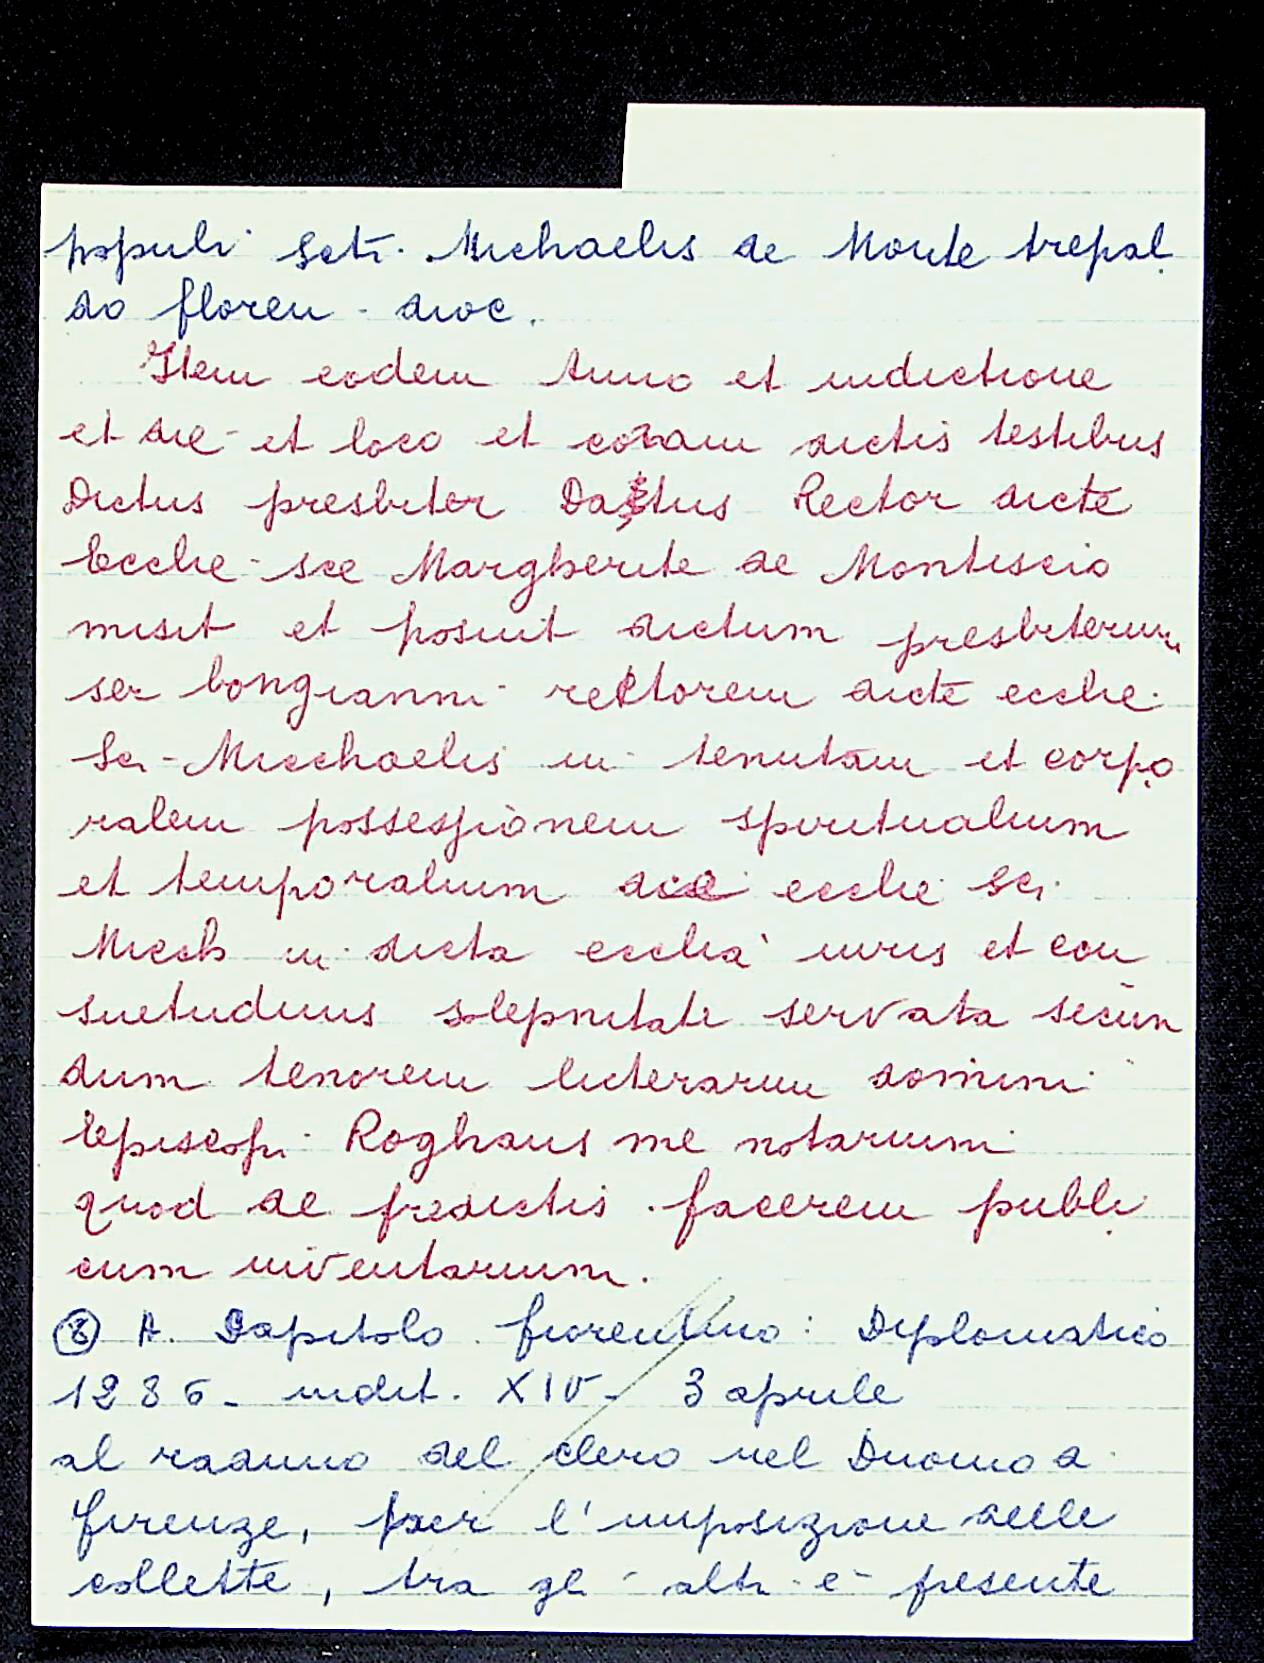 populi Scti. Michaelis de Monte trepal
do floren. dioc.
Item eodem Anno et indictione
et die et loco et coram dictis testibus
Dictus presbiter Dattus Rector dicte
Ecclie sce Margherite de Montiscio
misit et posuit dictum presbiterum
ser bongianni rectorem dicte ecclie
Sci Micchaelis in tenutam et corpo
ralem possessionem spiritualium
et temporalium dce ecclie sci
Micch in dicta ecclia iuris et con
suetudinis solepnitate servata secun
dum tenorem licterarum domini
Episcopi Roghans me notarium
quod de predictis facerem publi
cum inventarium.
⑧ A. Capitolo fiorentino: Diplomatico
1286 - indit. XIV - 3 aprile
al raduno del clero nel Duomo a
firenze, per l'imposizione delle
collette, tra gli altri è presente